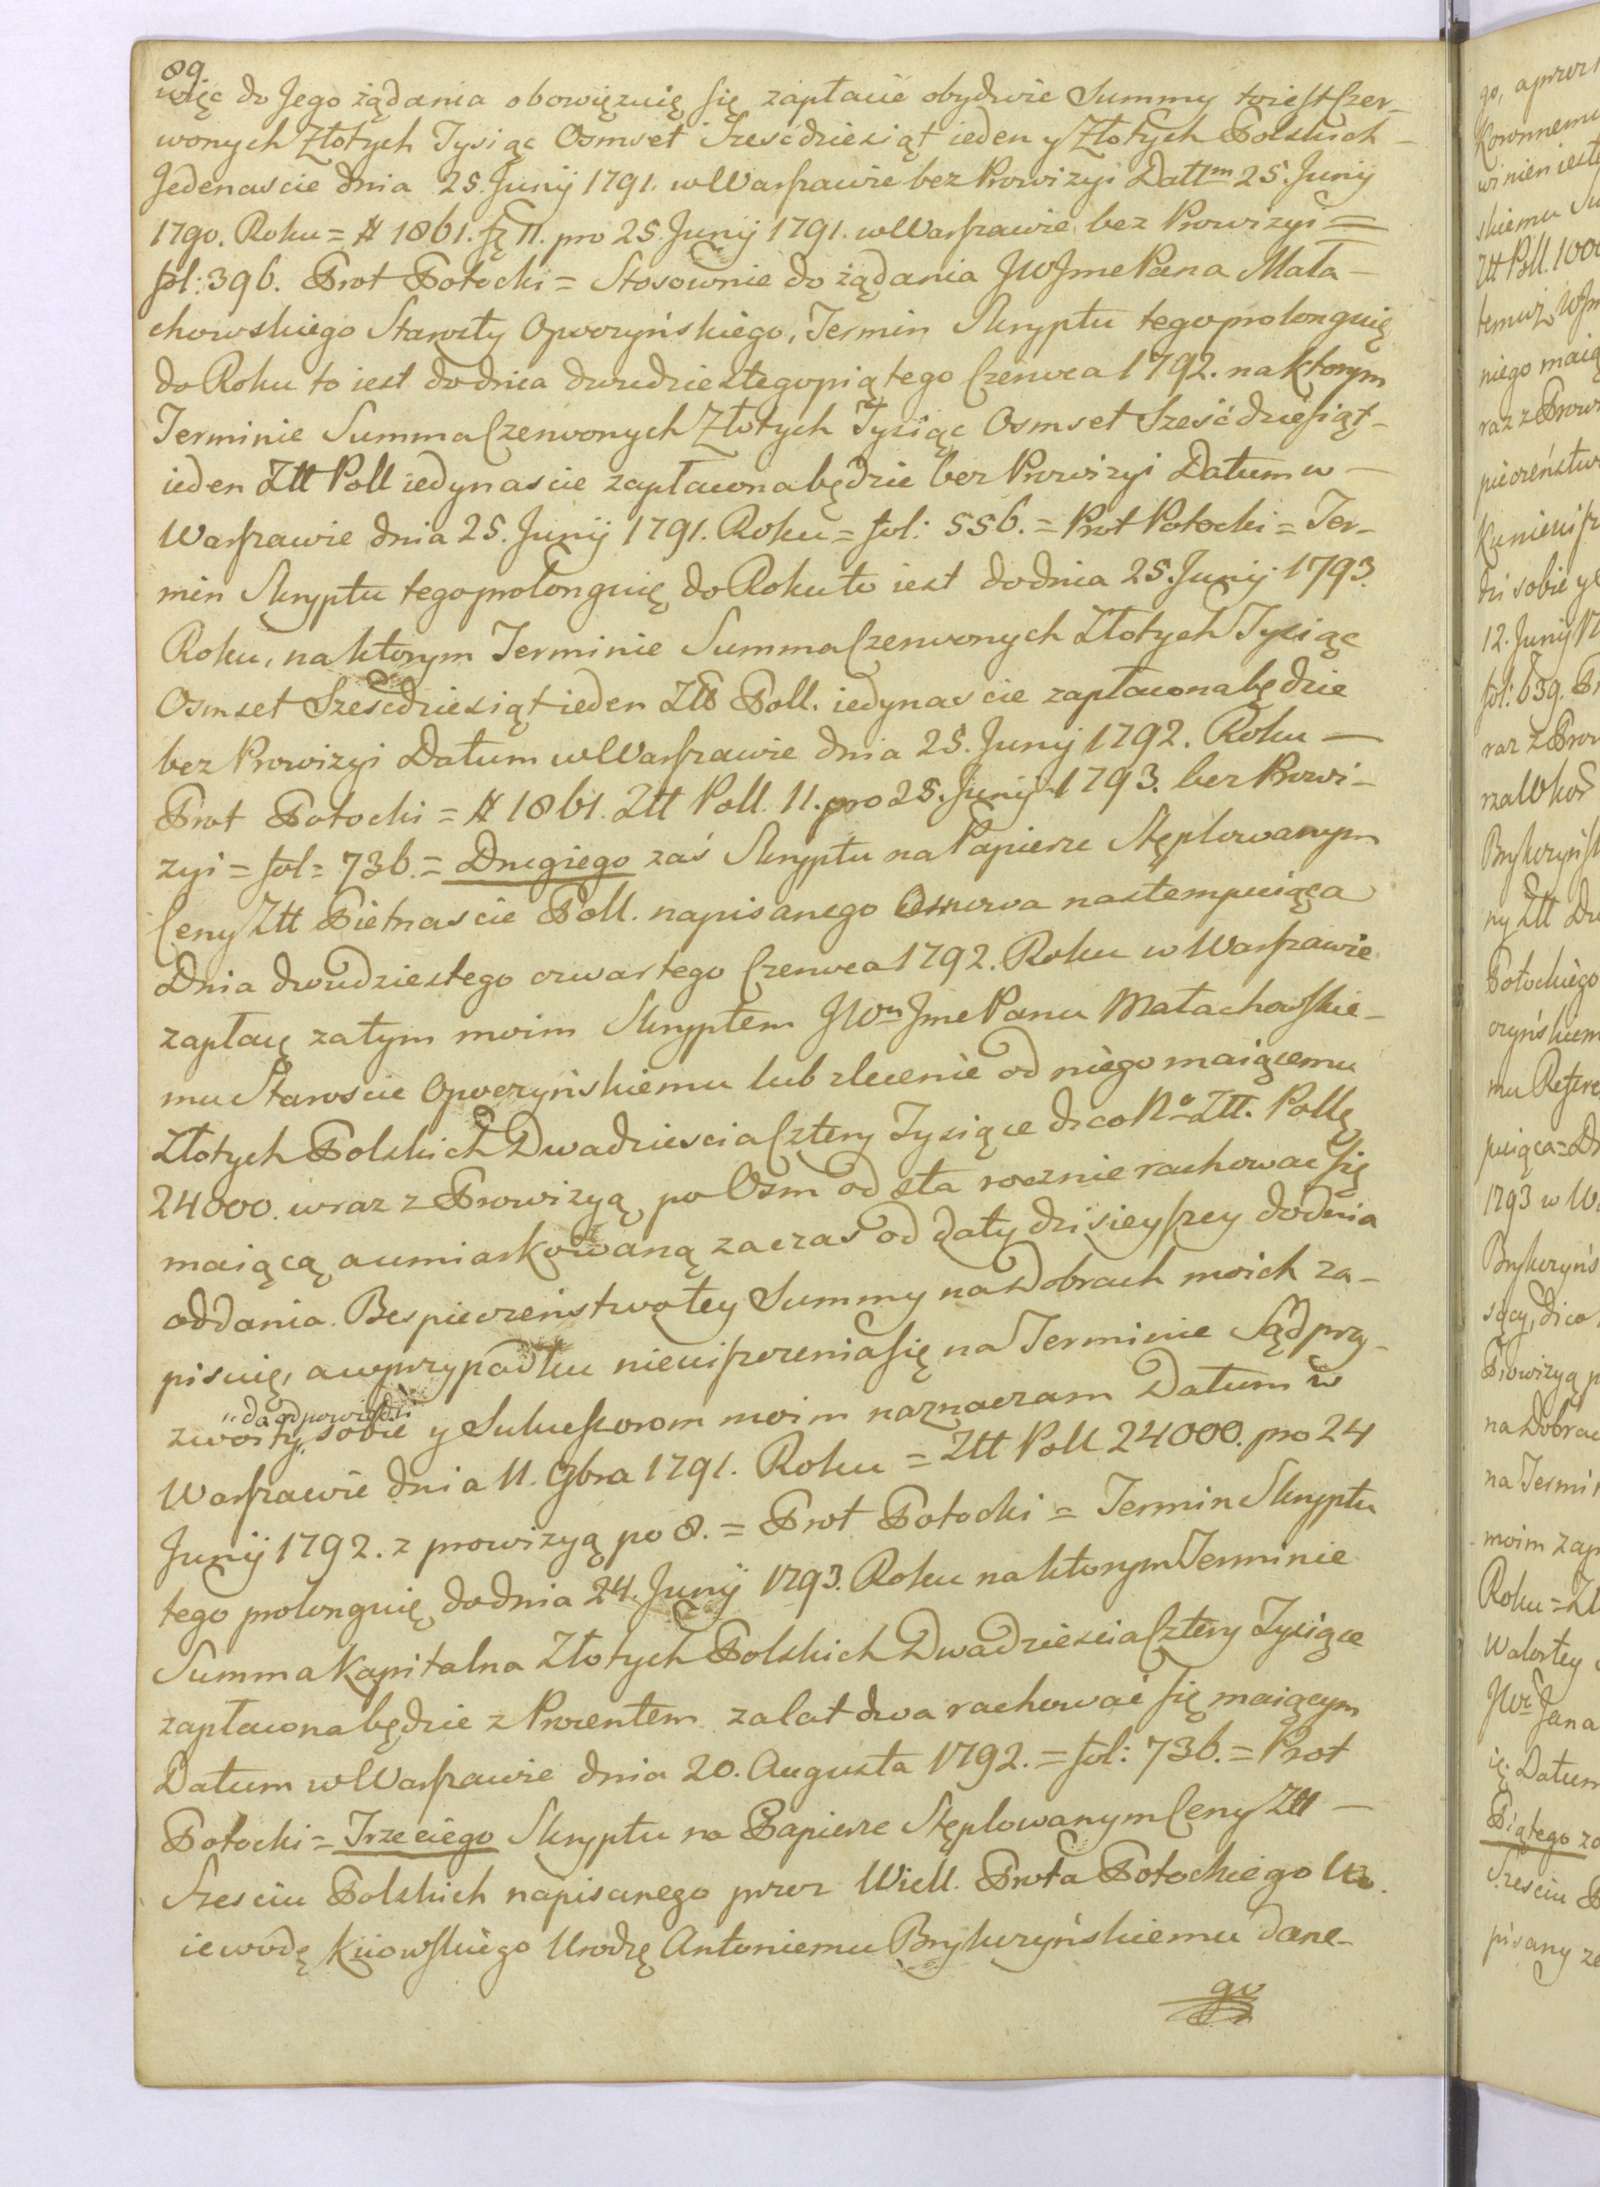 89
więc do Jego żądania obowięzuię się zapłacić obydwie Summy toiest Czer-
wonych Złotych Tysiąc Osmset Szescdziesiąt ieden y Złotych Polskich -
Jedenascie dnia 25. Junij 1791. w Warszawie bez Prowizyi Dattm 25. Junij
1790. Roku = # 1861. fp 11. pro 25. Junij 1791. w Warszawie bez Prowizyi =
fol: 396. Prot Potocki = Stosownie do żądania JW Jme Pana Mała-
chowskiego Starosty Opoczyńskiego, Termin Skryptu tego prolonguię
do Roku to iest do dnia dwudziestego piątego Czerwca 1792. na ktorym
Terminie Summa Czerwonych Złotych Tysiąc Osmset Sześćdziesiąt-
ieden Ztt Poll iedynascie zapłacona będzie bez Prowizyi Datum w -
Warszawie dnia 25. Junij 1791. Roku = fol: 556. = Prot Potocki = Ter-
min Skryptu tego prolonguię do Roku to iest do dnia 25. Junij 1793.
Roku, na ktorym Terminie Summa Czerwonych Złotych Tysiąc
Osmset Szescdziesiąt ieden Ztt Poll. iedynascie zapłacona będzie
bez Prowizyi Datum w Warszawie dnia 25. Junij 1792. Roku -
Prot Potocki = # 1861. Ztt Poll. 11. pro 25. Junij 1793. bez Prowi-
zyi = fol = 736. = Drugiego zaś Skryptu na Papierze Stęplowanym
Ceny Ztt Pietnascie Poll. napisanego Osnowa nastempuiąca
Dnia dwudziestego czwartego Czerwca 1792. Roku w Warszawie
zapłacę za tym moim Skryptem JWu Jme Panu Małachowskie-
mu Staroscie Opoczyńskiemu lub zlecenie od niego maiącemu
Złotych Polskich Dwadziescia Cztery Tysiące dico No Ztt. Pollę
24000. wraz z Prowizyą po Osm od sta rocznie rachowac się
maiącą a umiarkowaną za czas od daty dzisieyszey do dnia
oddania. Bespieczeństwo tey Summy na Dobrach moich za-
pisuię, a w przypadku nieuiszczenia się na Terminie Sąd przy-
"do odpowiedzi
zwoity, sobie y Sukcessorom moim naznaczam Datum w
Warszawie dnia 11. 9bra 1791. Roku = Ztt Poll 24000. pro 24
Junij 1792. z prowizyą po 8. = Prot Potocki = Termin Skryptu
tego prolonguię do dnia 24. Junij 1793. Roku na ktorym Terminie
Summa Kapitalna Złotych Polskich Dwadziescia Cztery Tysiące
zapłacona będzie z Procentem za lat dwa rachować się maiącym
Datum w Warszawie dnia 20. Augusta 1792. = fol: 736. = Prot
Potocki = Trzeciego Skryptu na Papierze Stęplowanym Ceny Ztt -
Szesciu Polskich napisanego przez Wiell. Prota Potockiego Wo-
iewodę Kiiowskiego Urodzę Antoniemu Brykczyńskiemu dane-
go